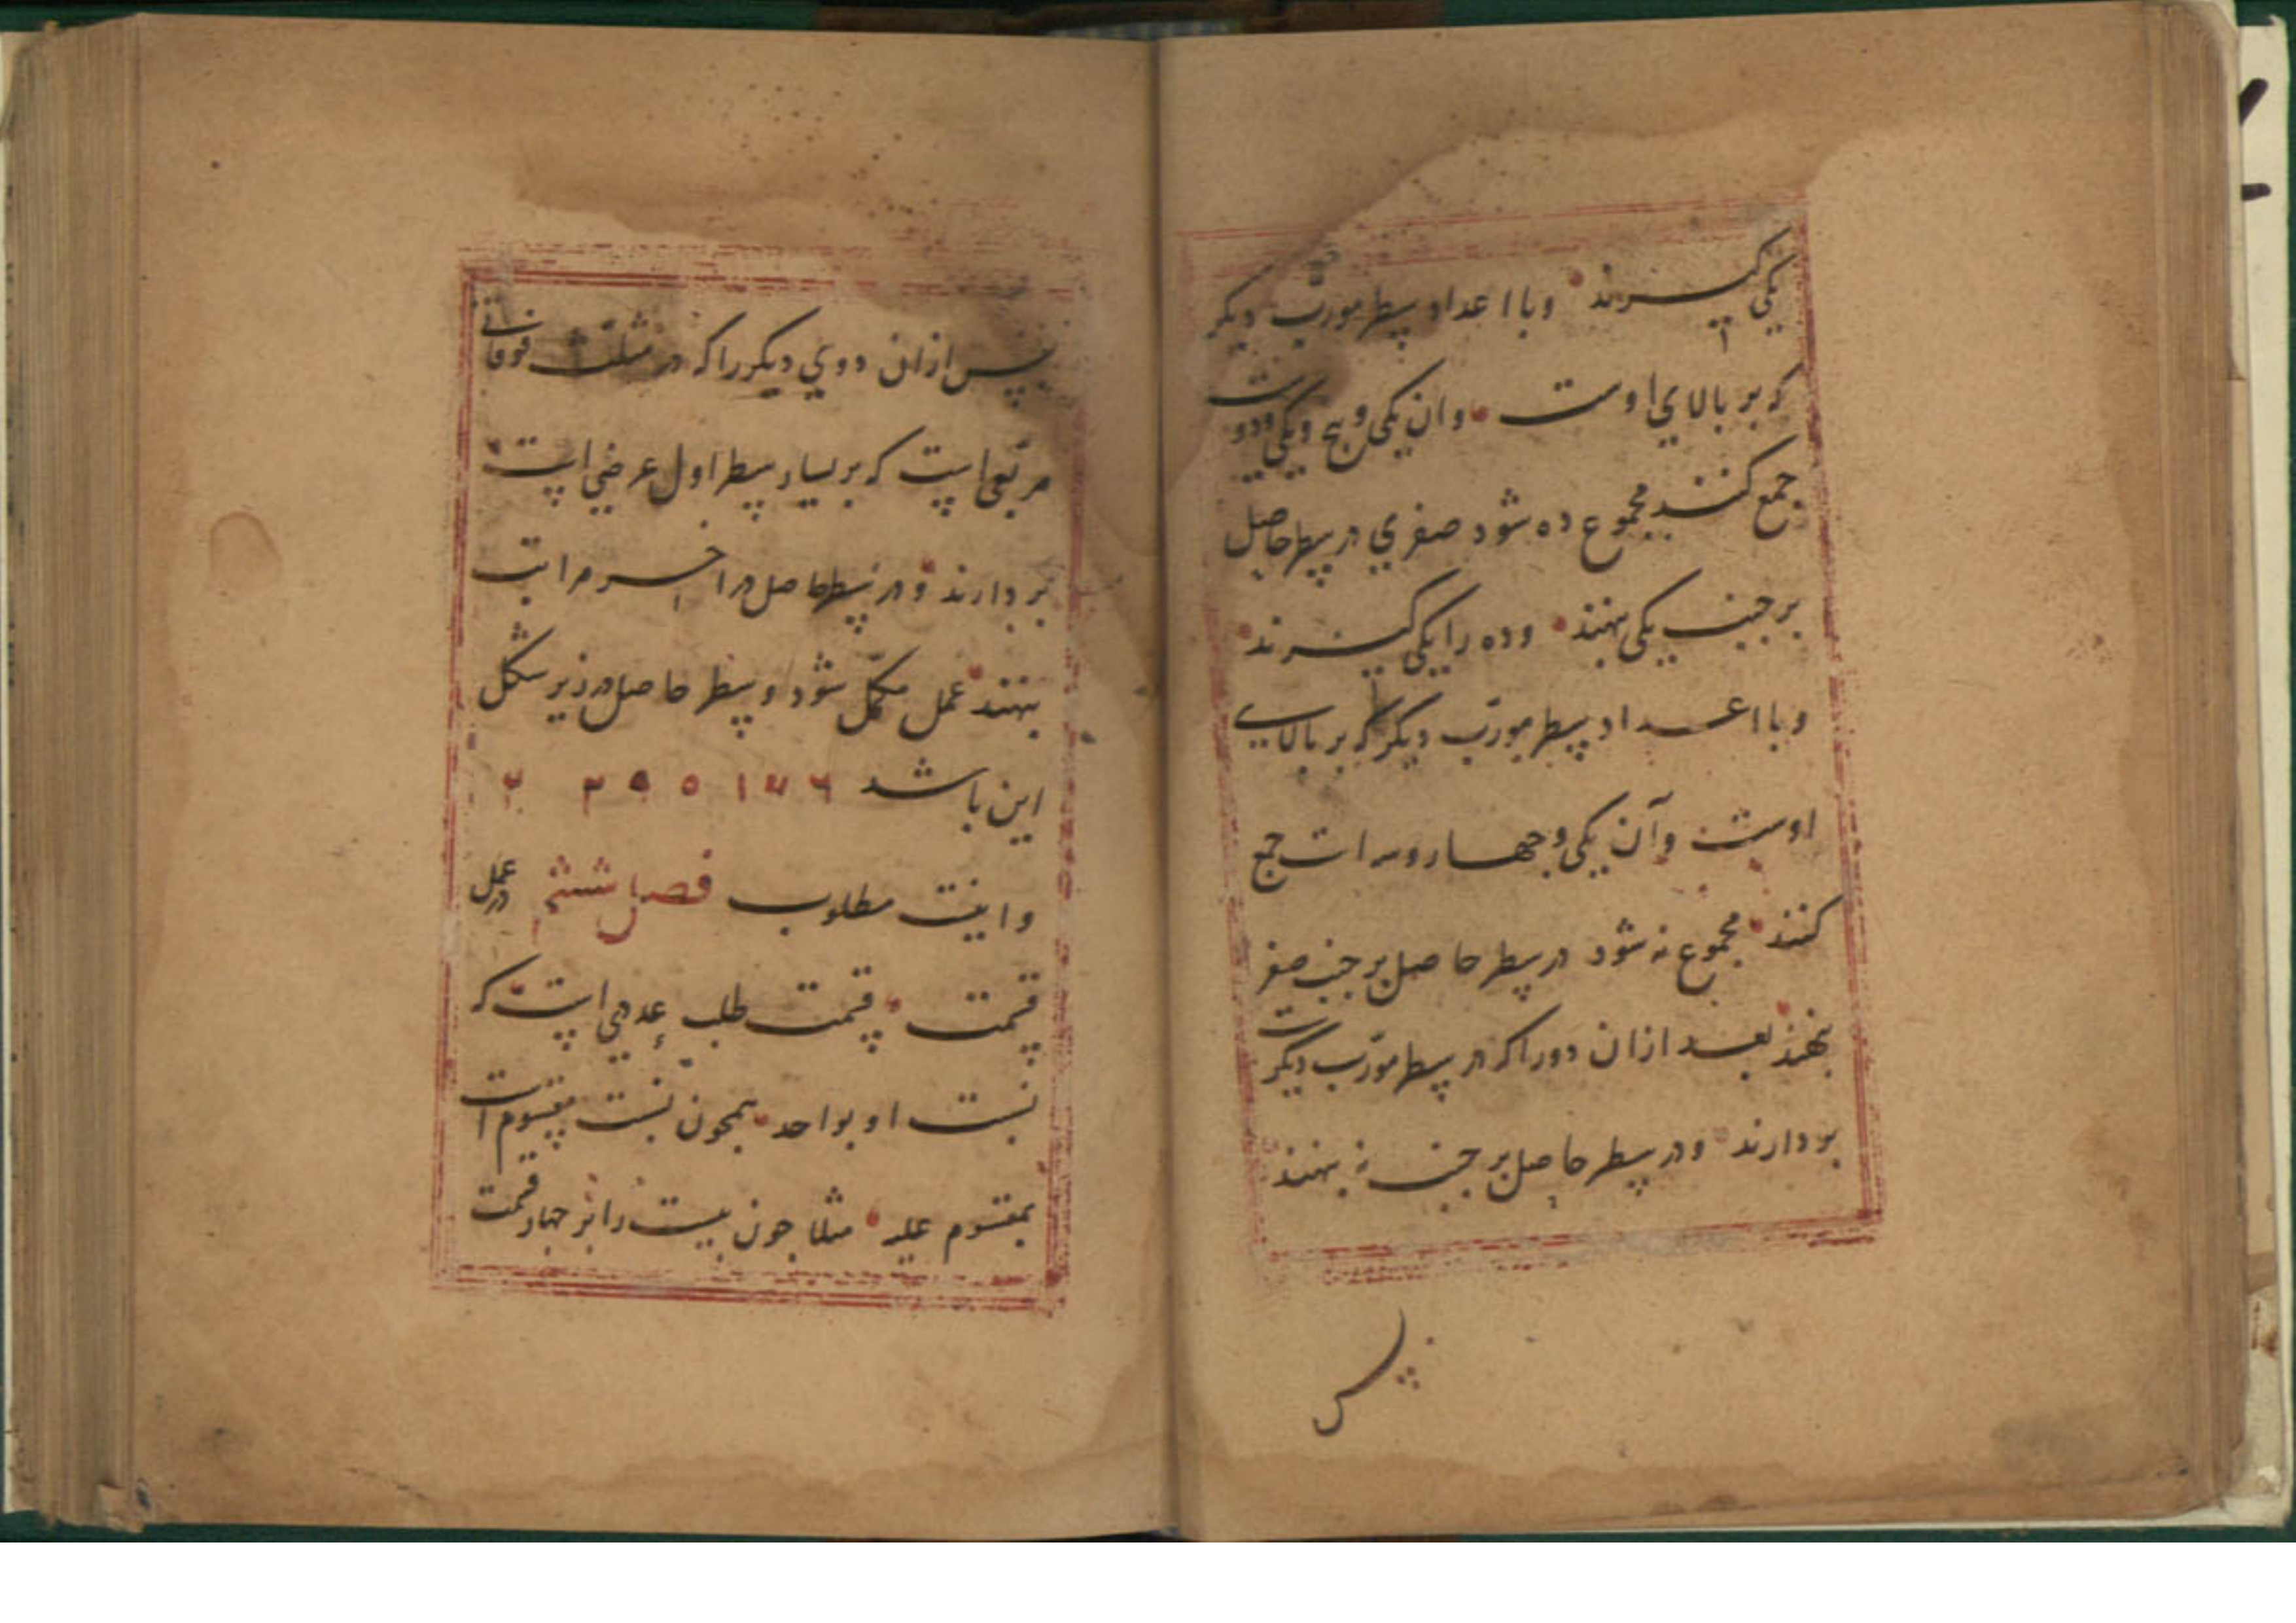 یکی گیرند و با اعداد سطر مورّب دیگر
که بر بالای اوست وان یکی و پنج و یکی و دوست
جمع کنند مجموع ده شود صفری در سطر حاصل
بر جنب یکی نهند وده را یکی گیرند
و با اعداد سطر مورّب دیگر که بر بالای
اوست وآن یکی و چهار وسه است جمع
کنند مجموع نه شود در سطر حاصل بر جنب صفر
نهند بعد ازان دو را که در سطر مورّب دیگرست
بردارند ودر سطر حاصل بر جنب نه نهند
پس
پس ازان دوی دیگر را که در مثلث فوقانی
مربعی است که بر یسار سطر اول عرضی است
بردارند و در سطر حاصل در اخر مراتب
نهند عمل مکمّل شود و سطر حاصل در زیر شکل
این باشد
واینست مطلوب فصل ششم در عمل
قسمت قسمت طلب عددی است که
نسبت او بواحد همچون نسبت مقسوم است
بمقسوم علیه مثلا چون بیست را بر چهار قسمت